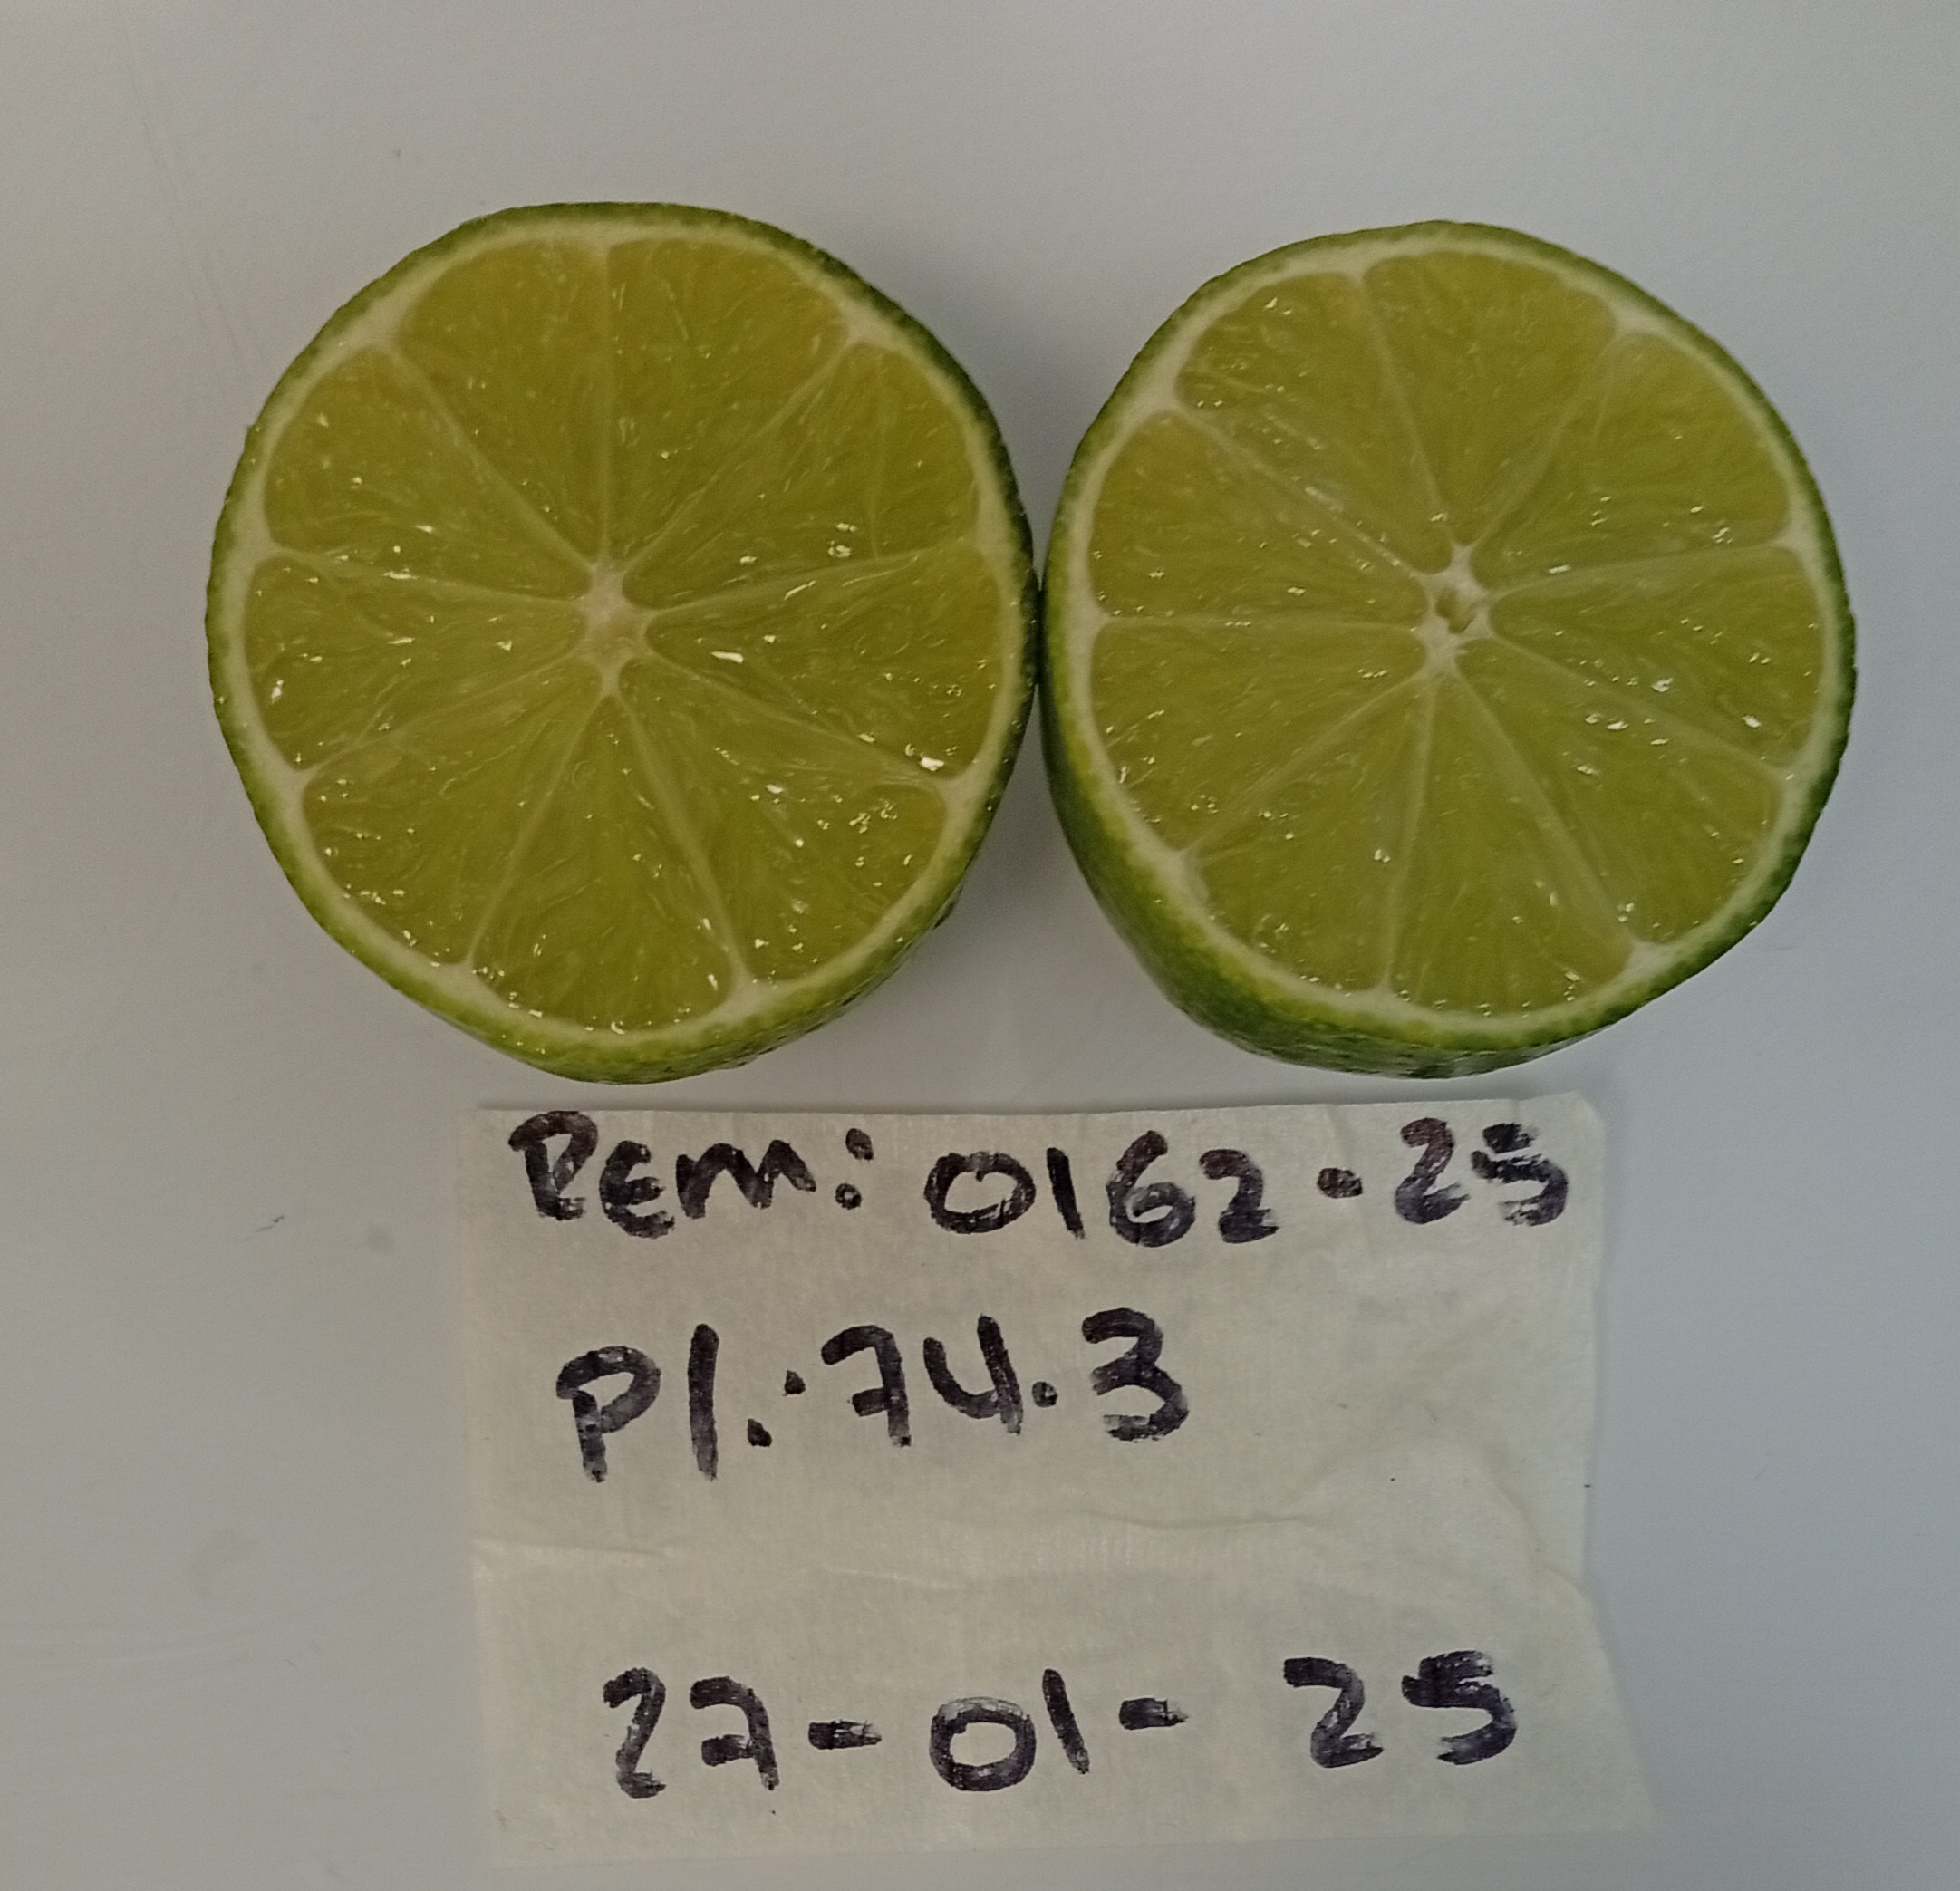 Rem: 0162-25
Pl.:74.3
27-01-25